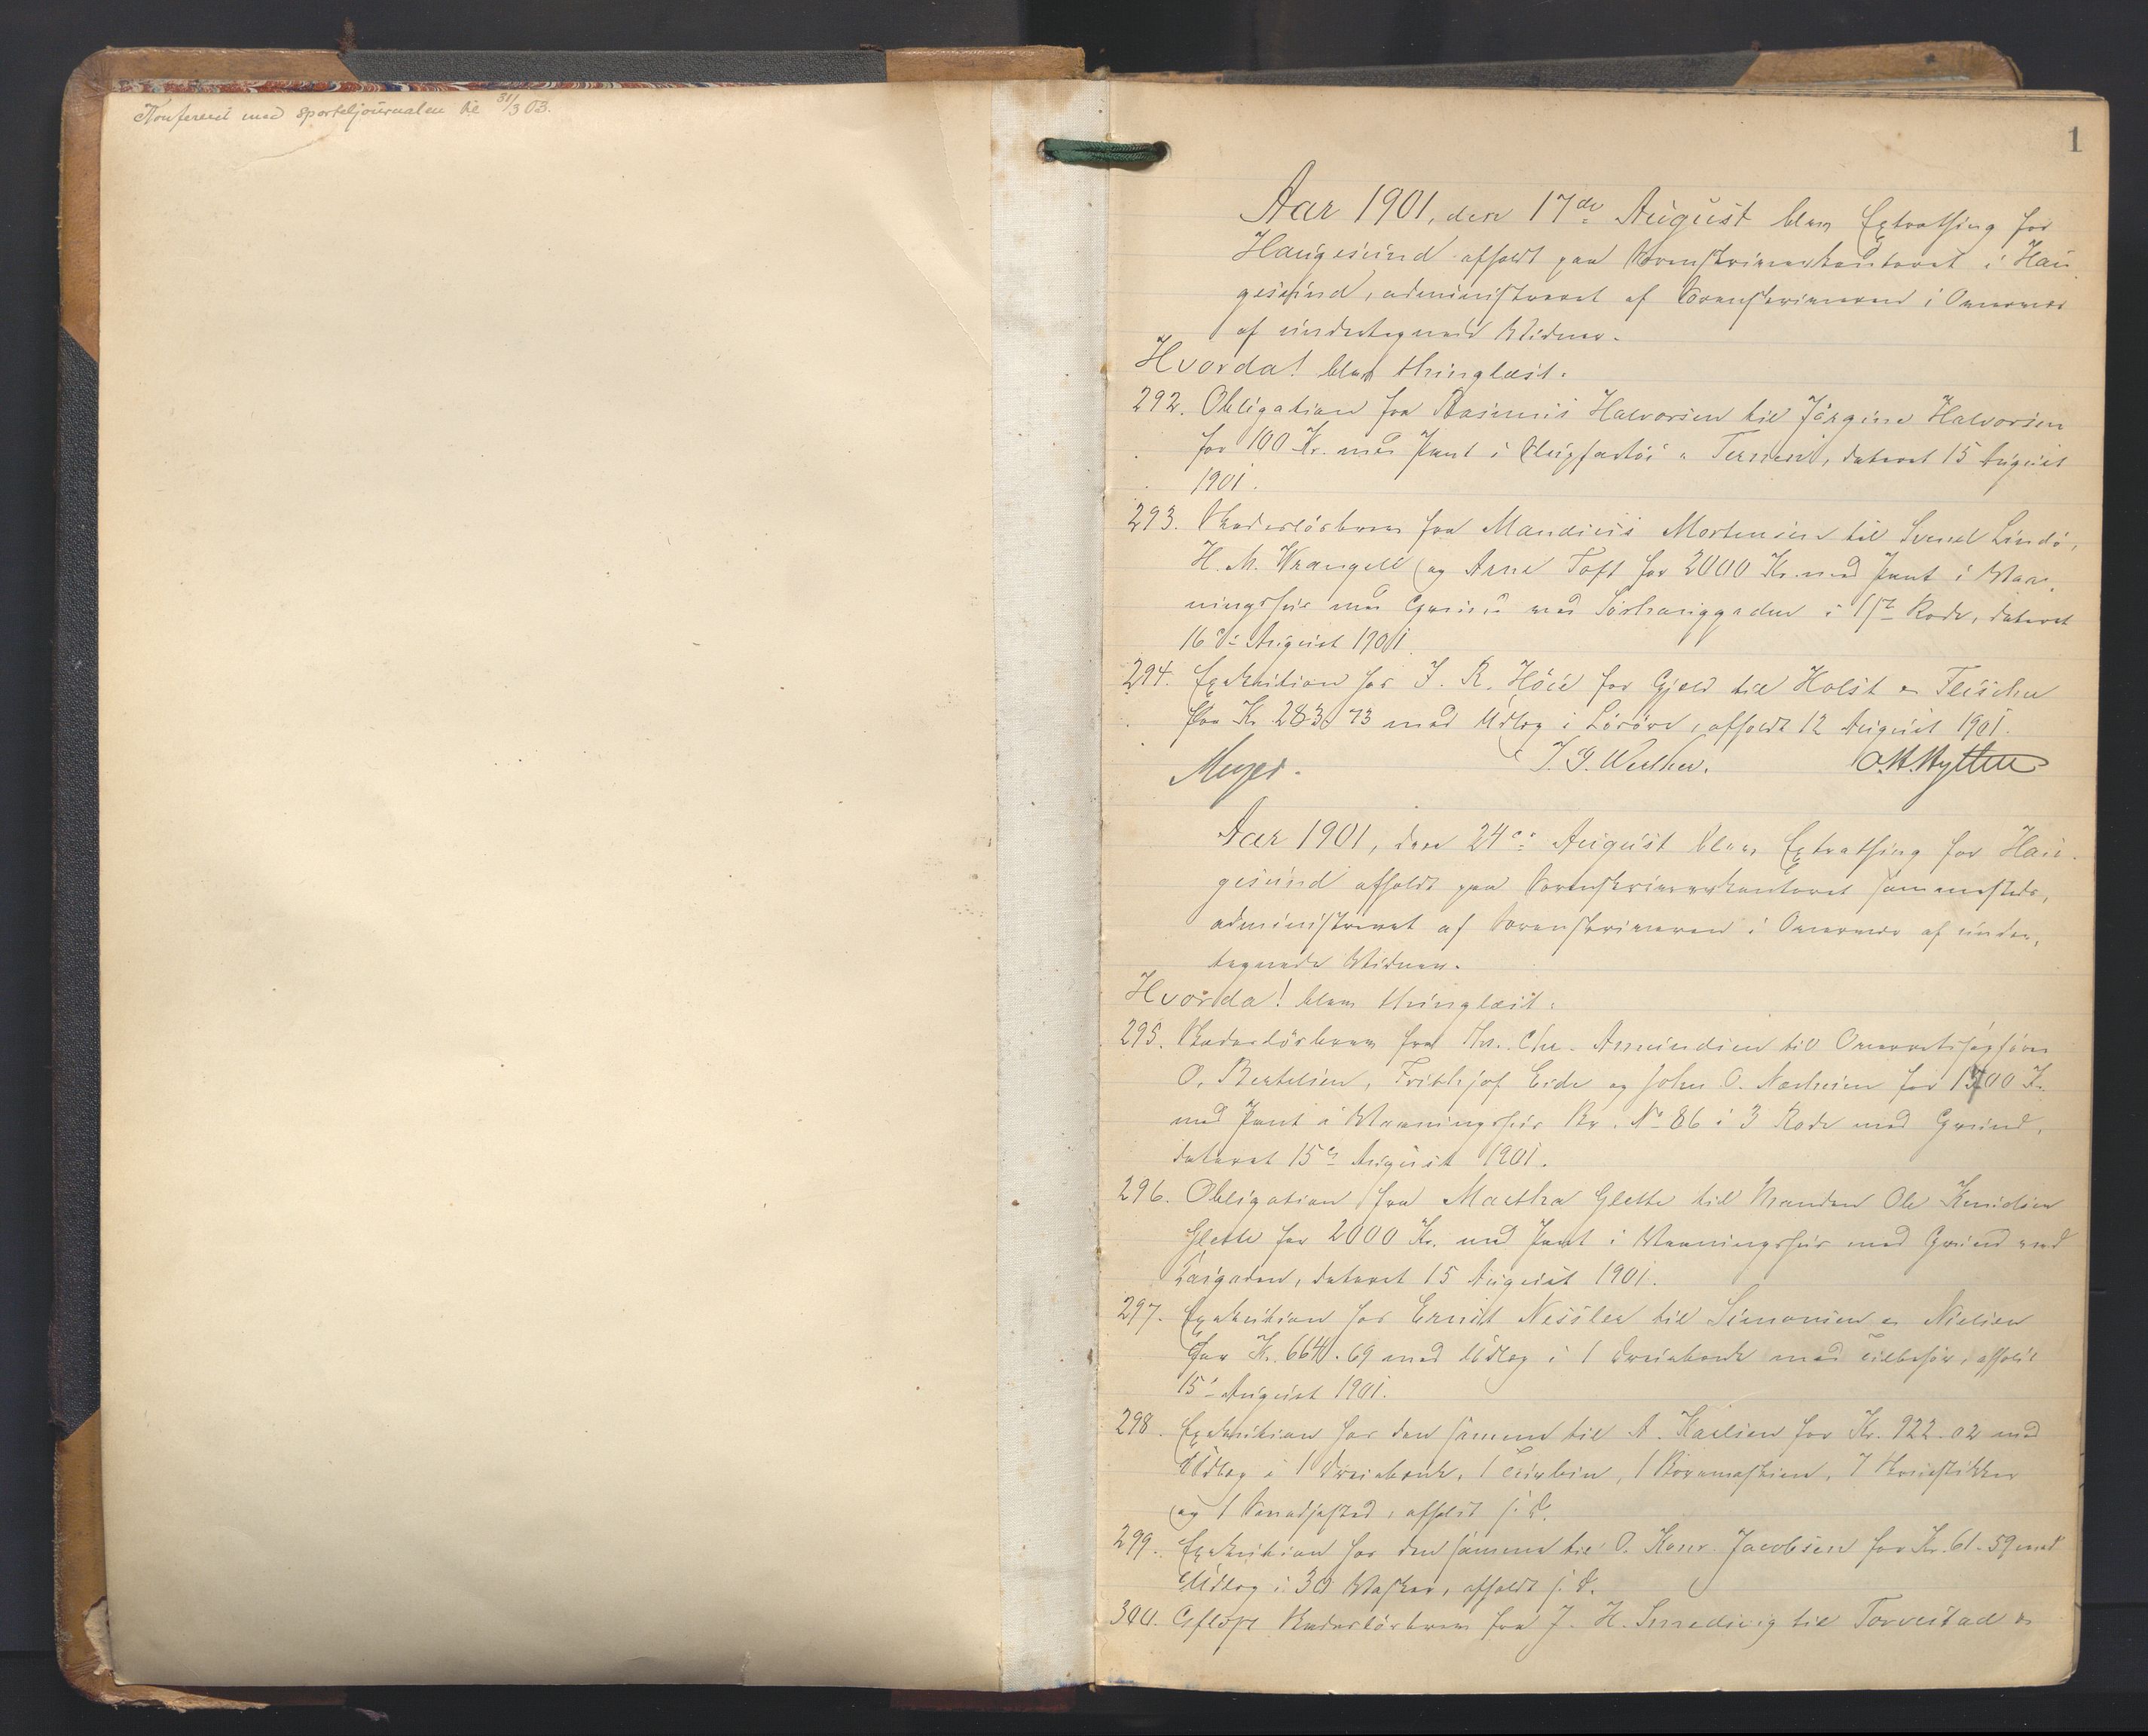 Konfereret med sporteljournalen til 31/3 03.
1
Aar 1901, den 17de August blev Extrathing for
Haugesund afholdt paa Sorenskriverkontoret i Hau
gesund, administreret af Sorenskriveren i Overvær
af undertegnede Vidner.
Hvorda! blev thinglæst.
292. Obligation fra Rasmus Halvorsen til Jörgine Halvorsen
for 100 Kr. med Pant i Slupfartöi " Ternen", dateret 15 August
1901.
293. Skadeslösbrev fra Maudius Mortensen til Svend Lindö,
H. M. Wrangell og Arne Toft for 2000 Kr. med Pant i Vaa-
ningshus med Grund ved Sörhauggaden i 1ste Rode, dateret
16de August 1901.
294. Exekution hos J. R. Höie for Gjeld til Holst & Fleischer
for Kr. 283.73 med Udlæg i Lösöre, afholdt 12 August 1901.
Meyer. O.H.Hytten
Aar 1901, den 24de August blev Extrathing for Hau-
gesund afholdt paa Sorenskriverkontoret sammesteds,
administreret af Sorenskriveren i Overvær af under-
tegnede Vidner.
Hvorda! blev thinglæst:
295. Skadeslösbrev fra Hs. Chr. Amundsen til Overretssagförer
O. Bertelsen, Frithjof Eide og John O. Næsheim for 1500 Kr.
med Pant i Vaaningshus Br. No 86 i 3 Rode med Grund,
dateret 15de August 1901.
296. Obligation fra Martha Glette til Manden Ole Knudsen
Glette for 2000 Kr. med Pant i Vaaningshus med Grund ved
Kaigaden, dateret 15 August 1901.
297. Exekution hos Ernst Nessler til Simonsen & Nielsen
for Kr. 664.69 med Udlæg i 1 Dreiebænk med Tilbehör, afholdt
15de August 1901.
298. Exekution hos den samme til A. Karlsen for Kr. 922.02 med
Udlæg i 1 Dreiebænk, 1 Turbin, 1 Boremaskine, 7 Skruestikker
og 1 , afholdt s. D.
299. Exekution hos den samme til O. Konr. Jacobsen for Kr. 61.59 med
Udlæg i 30 , afholdt s. D.
300. Aflyst Skadeslösbrev fra J. H. Smedsvig til Torvestad &